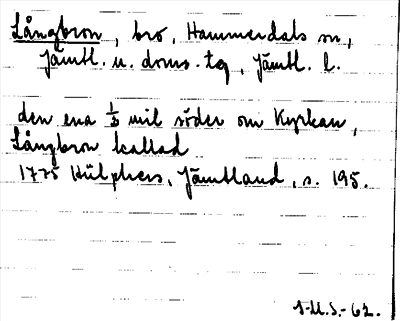 Långbron, bro, Hammerdals sn,
Jämtl. n. doms. tg, Jämtl. l.
den ena ½ mil söder om Kyrkan,
Långbron kallad
1775 Hülphers, Jämtland, s. 195.